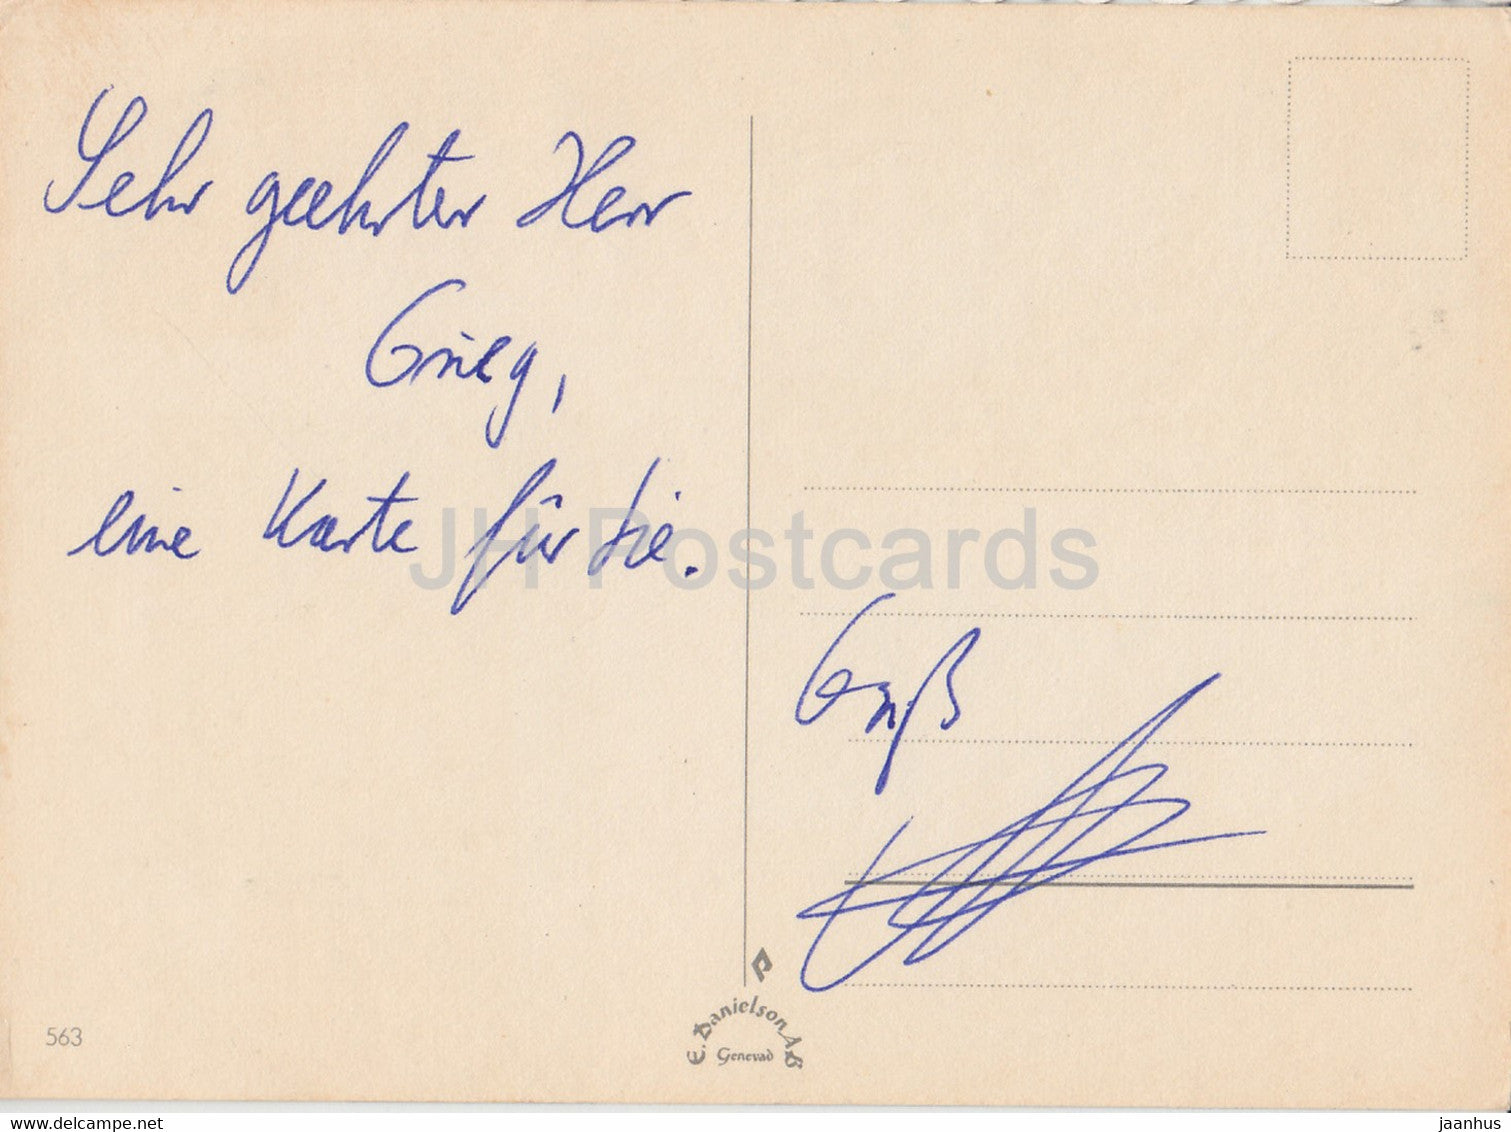 Sehr geehrter Herr
Grieg,
eine Karte für Sie.
Gruß
JH Postcards
563
E. Danielson AB
Genevad
delcampe.net
jaanhus